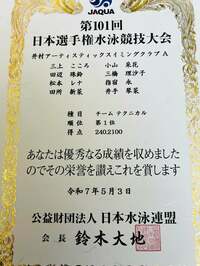 JAQUA
第101回
日本選手権水泳競技大会
井村アーティスティックスイミングクラブ A
三上 こころ 小山 泉花
田辺 珠鈴 三橋 理沙子
松本 レナ 指宿 永
田所 新菜 井手 琴菜
種目 チームテクニカル
順位 第1位
得点 240.2100
あなたは優秀なる成績を収めました
のでその栄誉を讃えこれを賞します
令和7年5月3日
公益財団法人 日本水泳連盟
会長 鈴木大地